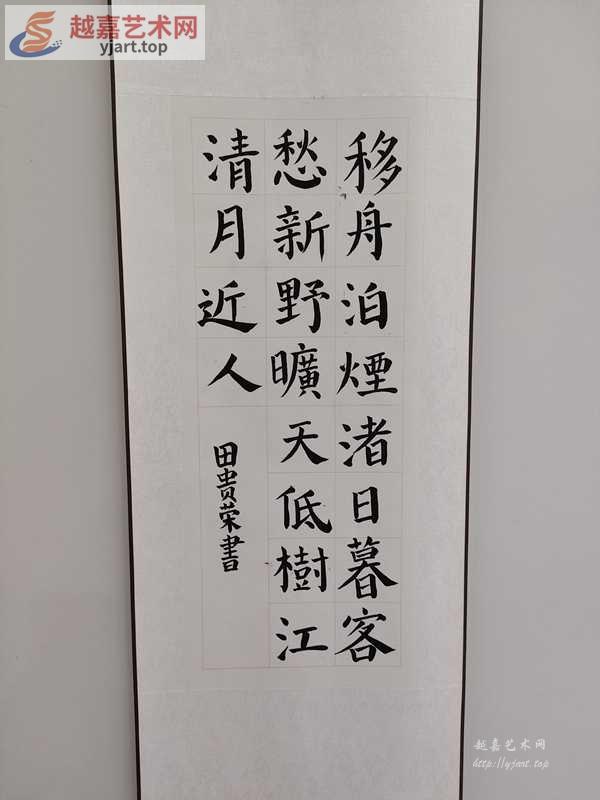 越嘉艺术网
yjart.top
移舟泊煙渚日暮客
愁新野曠天低樹江
清月近人
田贵荣書
越嘉艺术网
http://yjart.top